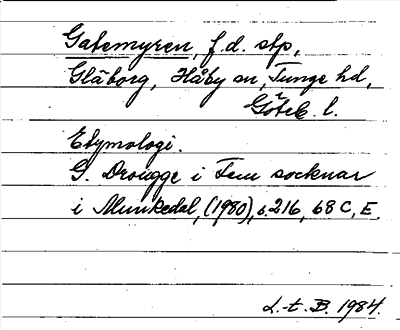 Gatemyren, f.d. stp,
Glåborg, Håby sn, Tunge hd,
Göteb. l.
Etymologi.
G. Drougge i Fem socknar
i Munkedal, (1980), s. 216, 68 C, E.
L.t.B. 1984.